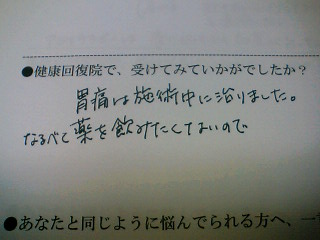 ●健康回復院で、受けてみていかがでしたか？
胃痛は施術中に治りました。
なるべく薬を飲みたくないので
●あなたと同じように悩んでられる方へ、一